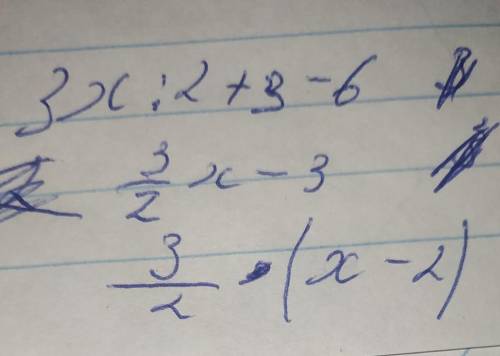 3x:2+3-6
3/2 x-3
3/2 · (x-2)